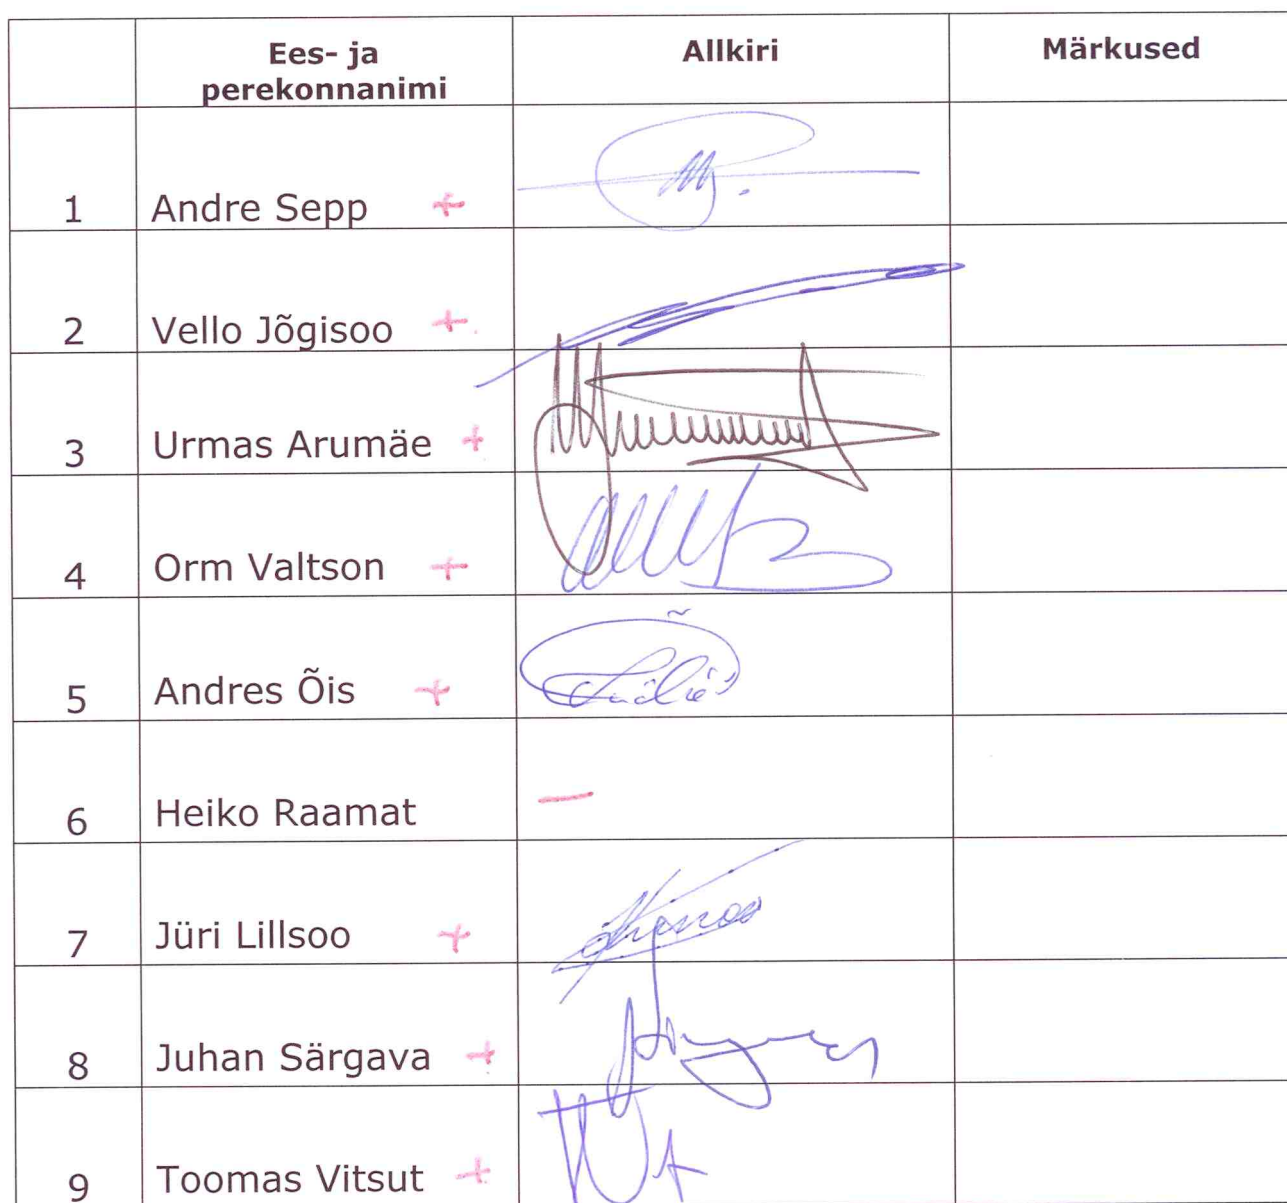 Ees- ja perekonnanimi Allkiri Märkused
1 Andre Sepp +
2 Vello Jõgisoo +
3 Urmas Arumäe +
4 Orm Valtson +
5 Andres Õis +
6 Heiko Raamat —
7 Jüri Lillsoo +
8 Juhan Särgava +
9 Toomas Vitsut +